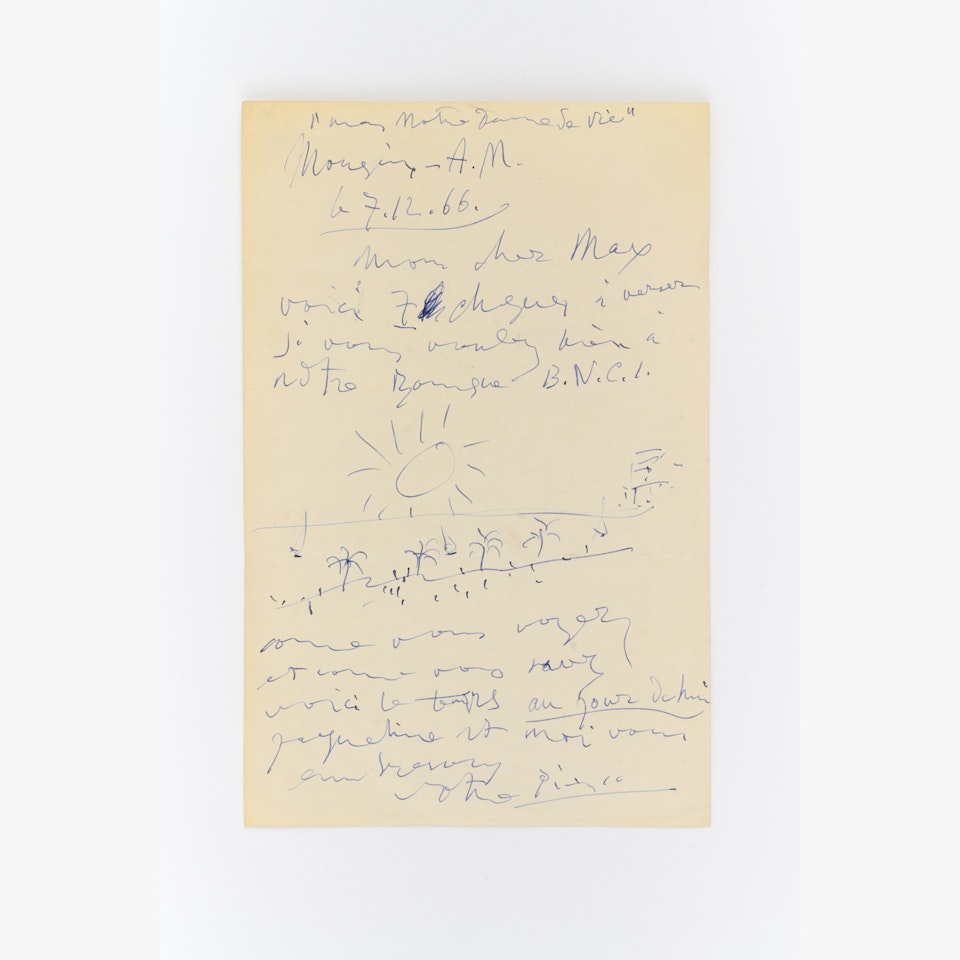 "mas Notre Dame de Vie"
Mougins - A.M.
le 7.12.66.
Mon cher Max
voici 7 cheques à verser
si vous voulez bien à
notre Banque B.N.C.I.
come vous voyez
et come vous savez
voici le temps au jour d'hui
Jacqueline et moi vous
embrassons
votre Picasso